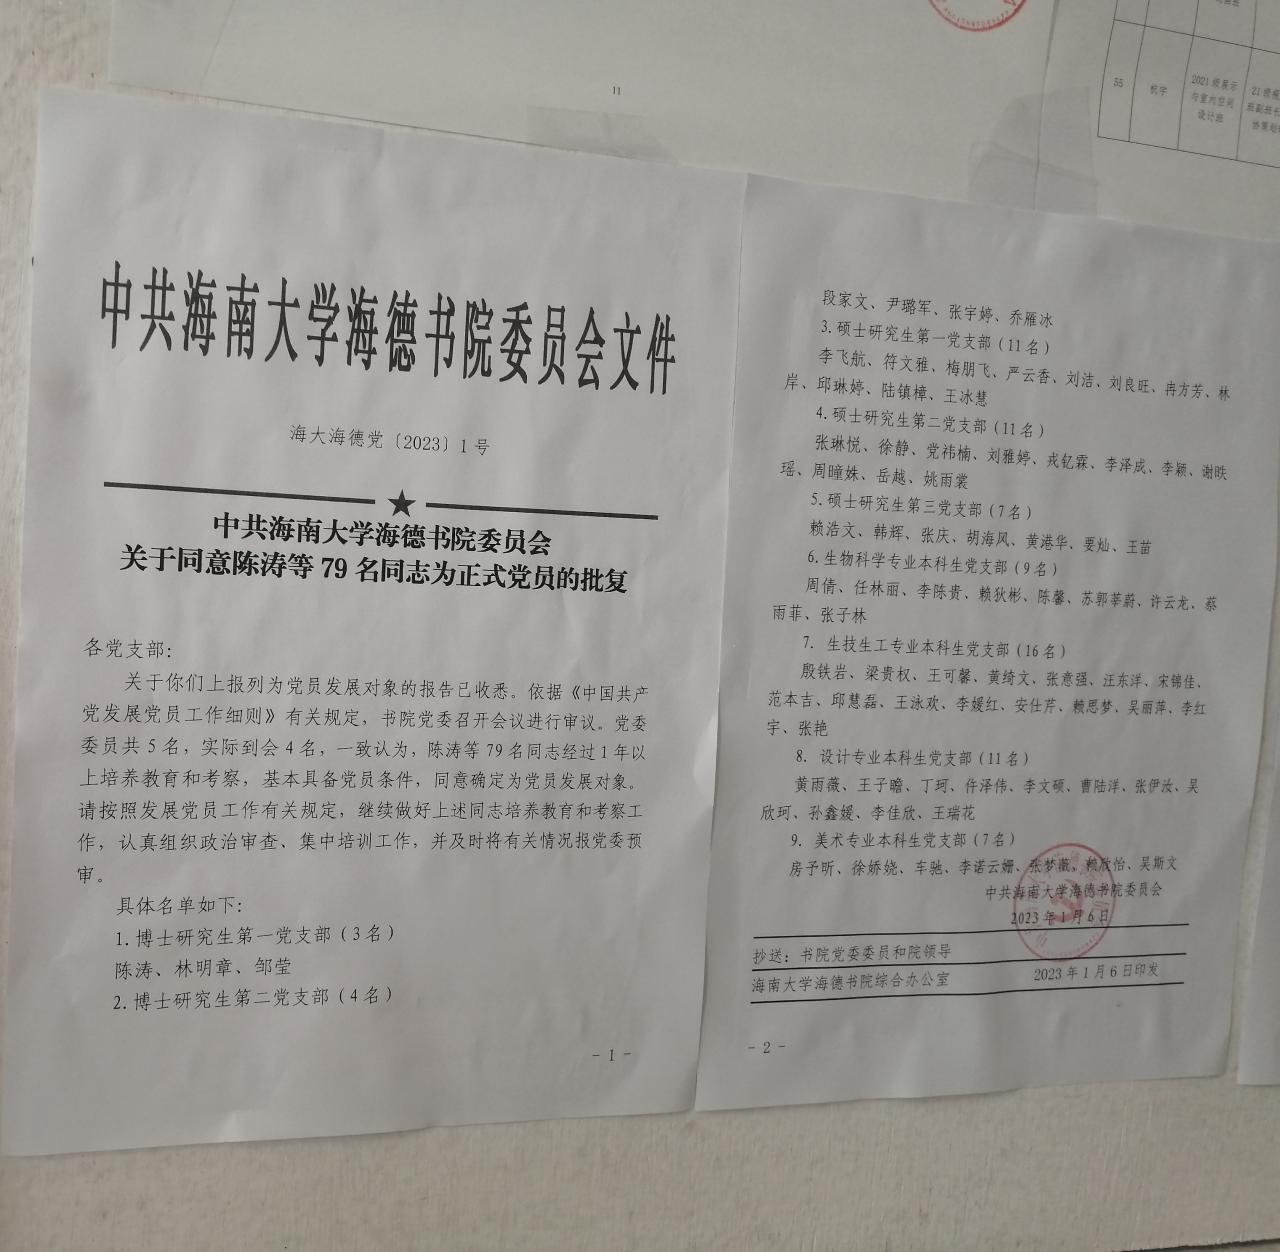 11
55
杭宇
2021级展示
与室内空间
设计班
中共海南大学海德书院委员会文件
海大海德党〔2023〕1号
中共海南大学海德书院委员会
关于同意陈涛等79名同志为正式党员的批复
各党支部：
关于你们上报列为党员发展对象的报告已收悉。依据《中国共产
党发展党员工作细则》有关规定，书院党委召开会议进行审议。党委
委员共5名，实际到会4名，一致认为，陈涛等79名同志经过1年以
上培养教育和考察，基本具备党员条件，同意确定为党员发展对象。
请按照发展党员工作有关规定，继续做好上述同志培养教育和考察工
作，认真组织政治审查、集中培训工作，并及时将有关情况报党委预
审。
具体名单如下：
1.博士研究生第一党支部（3名）
陈涛、林明章、邹莹
2.博士研究生第二党支部（4名）
- 1 -
段家文、尹璐军、张宇婷、乔雁冰
3.硕士研究生第一党支部（11名）
李飞航、符文雅、梅朋飞、严云香、刘洁、刘良旺、冉方芳、林
岸、邱琳婷、陆镇樟、王冰慧
4.硕士研究生第二党支部（11名）
张琳悦、徐静、党祎楠、刘雅婷、戎钇霖、李泽成、李颖、谢昳
瑶、周曈姝、岳越、姚雨裳
5.硕士研究生第三党支部（7名）
赖浩文、韩辉、张庆、胡海风、黄港华、要灿、王苗
6.生物科学专业本科生党支部（9名）
周倩、任林丽、李陈贵、赖狄彬、陈馨、苏郭莘蔚、许云龙、蔡
雨菲、张子林
7. 生技生工专业本科生党支部（16名）
殷铁岩、梁贵权、王可馨、黄绮文、张意强、汪东洋、宋锦佳、
范本吉、邱慧磊、王泳欢、李媛红、安仕芹、赖思梦、吴丽萍、李红
宇、张艳
8. 设计专业本科生党支部（11名）
黄雨薇、王子瞻、丁珂、仵泽伟、李文硕、曹陆洋、张伊汝、吴
欣珂、孙鑫媛、李佳欣、王瑞花
9. 美术专业本科生党支部（7名）
房予昕、徐娇娆、车驰、李诺云姗、张梦薇、赖欣怡、吴斯文
中共海南大学海德书院委员会
2023年1月6日
抄送：书院党委委员和院领导
海南大学海德书院综合办公室 2023年1月6日印发
- 2 -